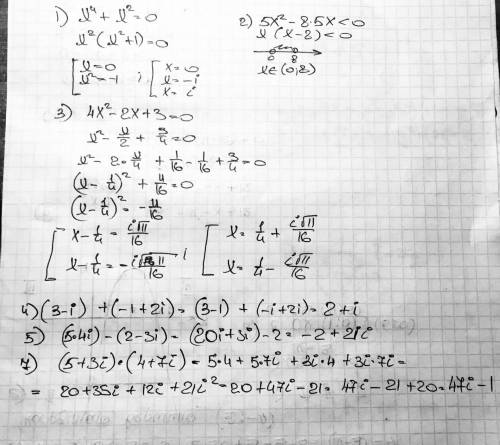 1) x⁴ + x² = 0
x²(x²+1)=0
[x=0
x²=-1 ; [x=0
x=-i
x=i
2) 5x²-2·5x<0
x(x-2)<0
0 2
x∈(0;2)
3) 4x²-2x+3=0
x² - x/2 + 3/4 = 0
x² - 2·x/4 + 1/16 - 1/16 + 3/4 = 0
(x - 1/4)² + 11/16 = 0
(x - 1/4)² = -11/16
[x - 1/4 = i√11/16
x - 1/4 = -i√11/16 ;
[x = 1/4 + i√11/16
x = 1/4 - i√11/16
4) (3-i) + (-1+2i) = (3-1) + (-i+2i) = 2+i
5) (5·4i) - (2-3i) = (20i+3i) - 2 = -2+2i
7) (5+3i)·(4+7i) = 5·4 + 5·7i + 3i·4 + 3i·7i =
= 20+35i + 12i + 21i² = 20+47i - 21 = 47i - 21 + 20 = 47i - 1